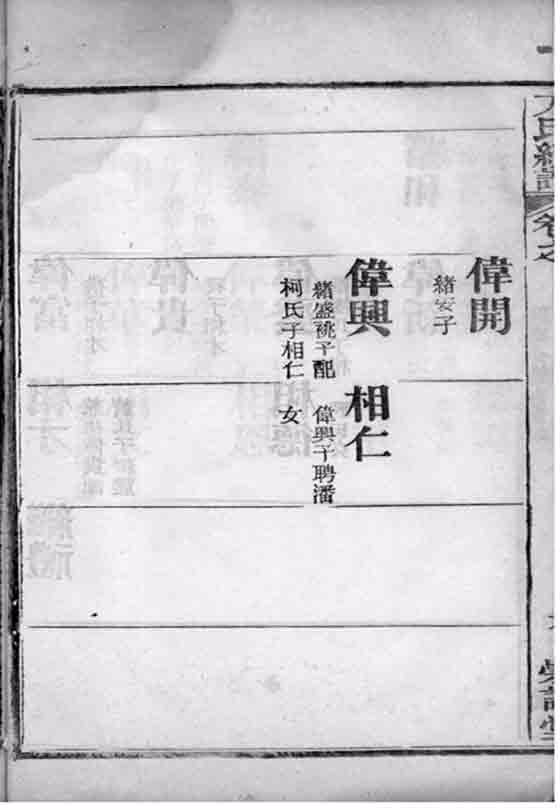 氏續譜
卷之
偉開
緒安子
偉興
緒盛祧子配
柯氏子相仁
相仁
偉興子聘潘
女